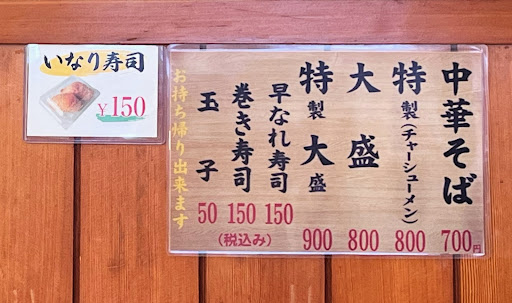 いなり寿司
¥150
中華そば 700円
特製(チャーシューメン) 800
大盛 800
特製大盛 900
早なれ寿司 150
巻き寿司 150
玉子 50
(税込み)
お持ち帰り出来ます